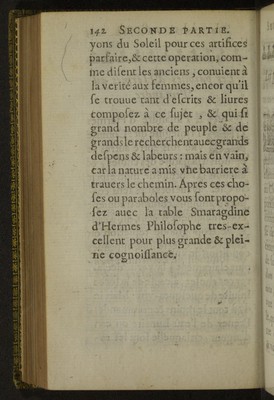 142 SECONDE PARTIE.
yons du Soleil pour ces artifices
parfaire, & cette operation, com-
me diſent les anciens, conuient à
la verité aux femmes, encor qu'il
ſe trouue tant d'eſcrits & liures
compoſez à ce ſujet, & qui ſi
grand nombre de peuple & de
grands le recherchent auec grands
deſpens & labeurs: mais en vain,
car la nature a mis vne barriere à
trauers le chemin. Apres ces cho-
ſes ou paraboles vous ſont propo-
ſez auec la table Smaragdine
d'Hermes Philoſophe tres-ex-
cellent pour plus grande & plei-
ne cognoiſſance.